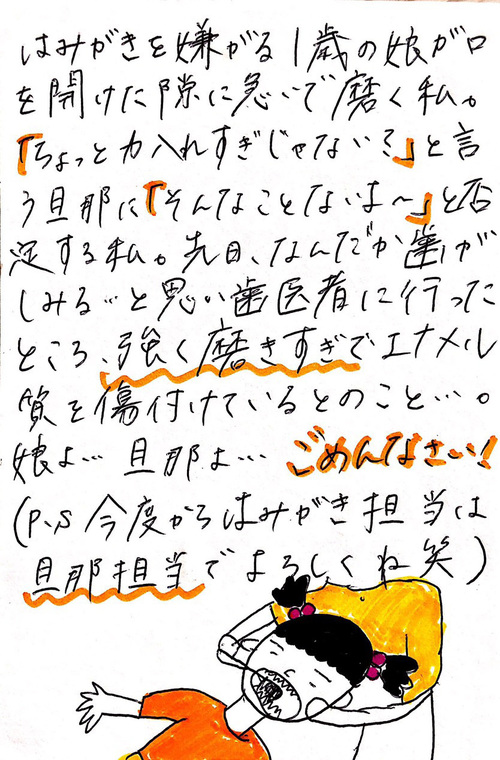 はみがきを嫌がる1歳の娘が口
を開けた隙に急いで磨く私。
「ちょっと力入れすぎじゃない?」と言
う旦那に「そんなことないよ〜」と否
定する私。先日、なんだか歯が
しみる…と思い歯医者に行った
ところ、強く磨きすぎでエナメル
質を傷付けているとのこと…。
娘よ… 旦那よ… ごめんなさい!
(P.S 今度からはみがき担当は
旦那担当でよろしくね笑)